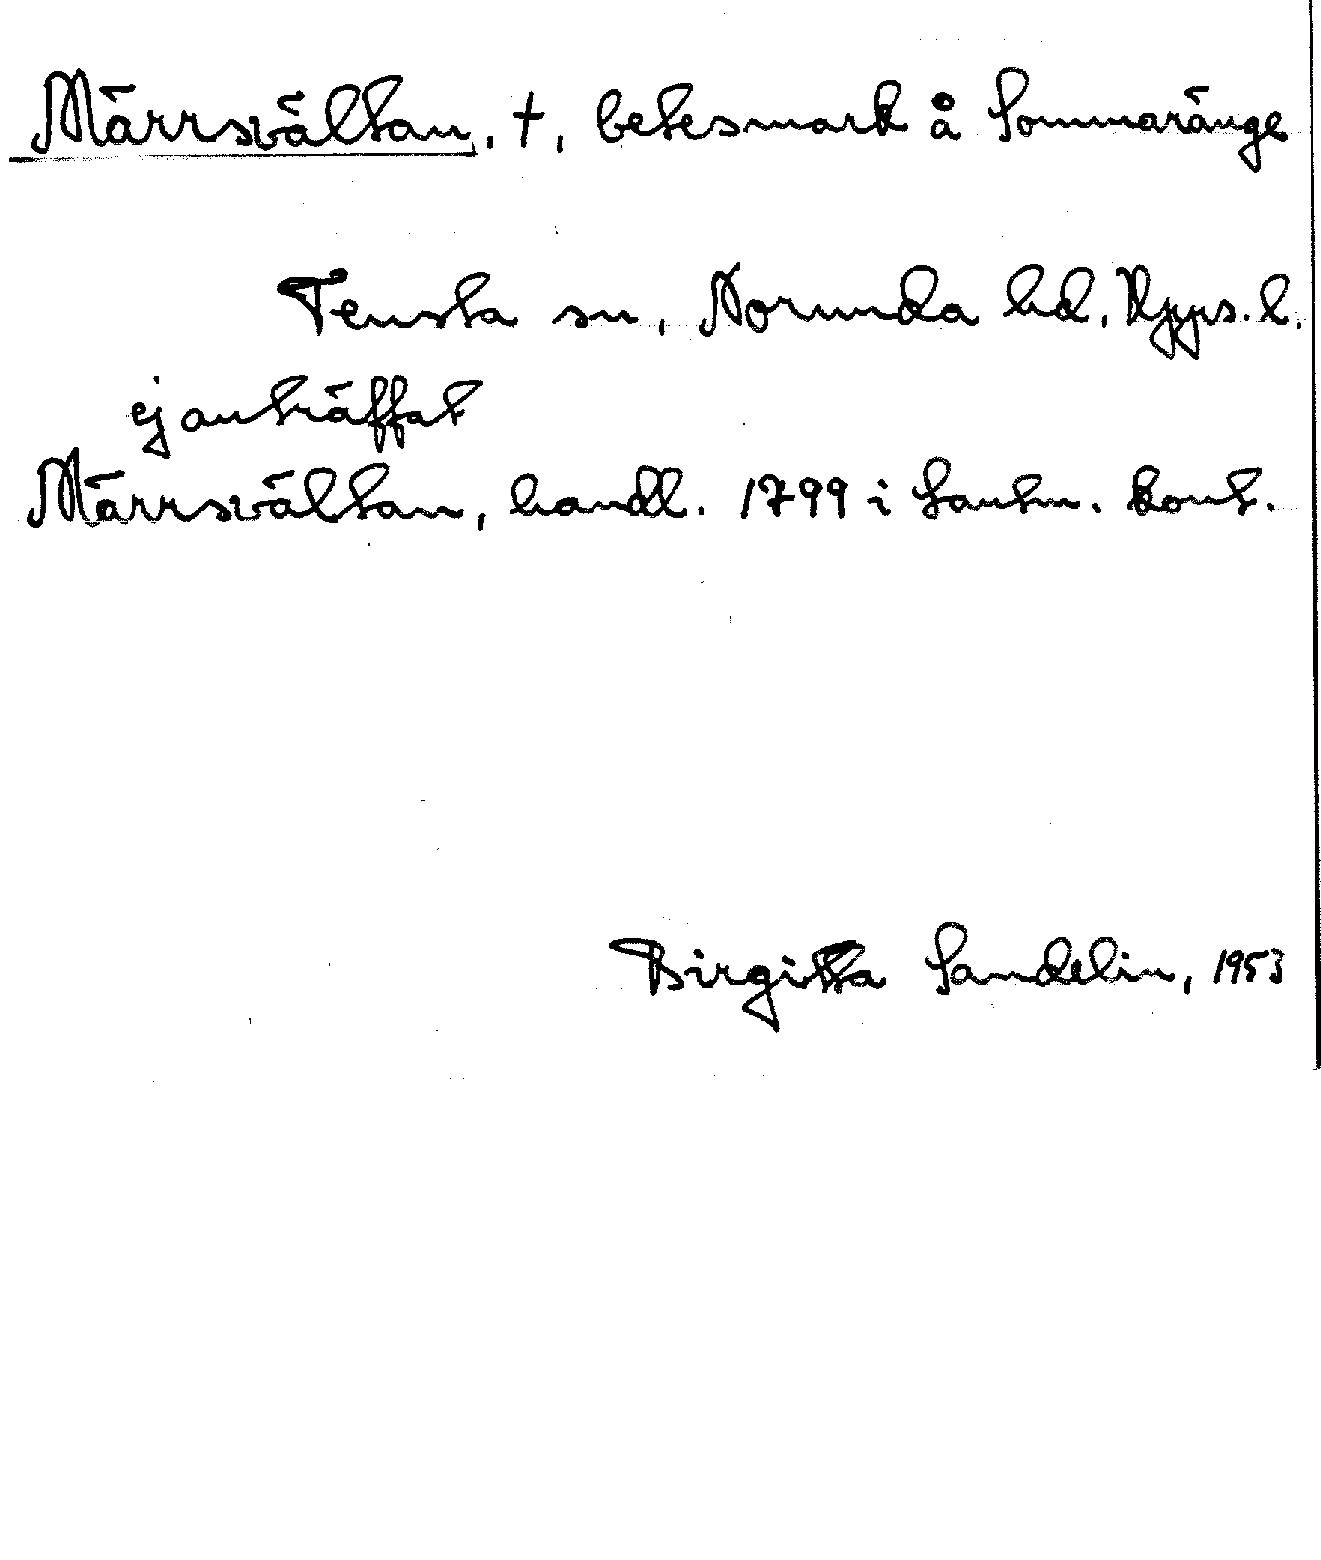 Märrsvältan, †, betesmark å Sommaränge
Tensta sn, Norunda hd, Upps. l.
ej anträffat
Märrsvältan, handl. 1799 i Lantm. kont.
Birgitta Sandelin, 1953